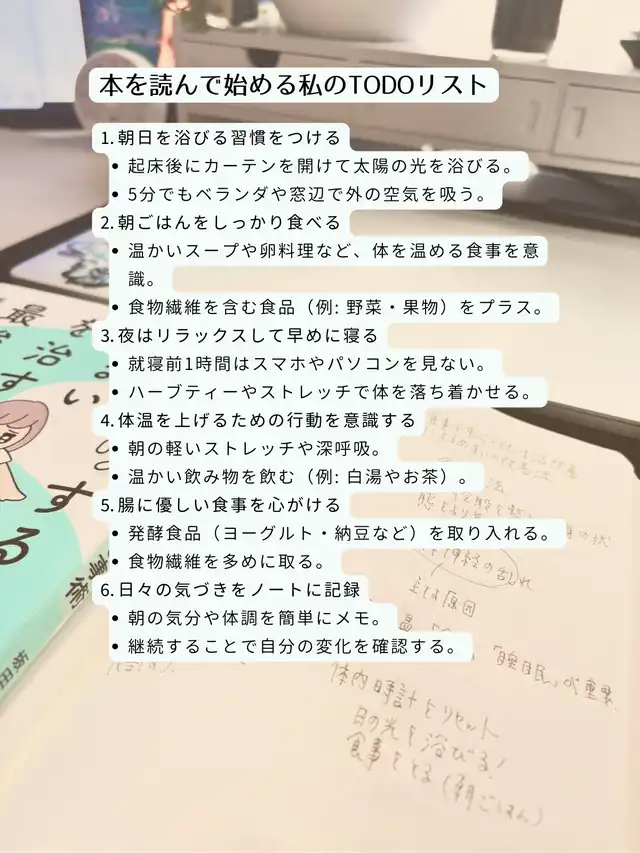 本を読んで始める私のTODOリスト
1.朝日を浴びる習慣をつける
• 起床後にカーテンを開けて太陽の光を浴びる。
• 5分でもベランダや窓辺で外の空気を吸う。
2.朝ごはんをしっかり食べる
• 温かいスープや卵料理など、体を温める食事を意
識。
• 食物繊維を含む食品（例: 野菜・果物）をプラス。
3.夜はリラックスして早めに寝る
• 就寝前1時間はスマホやパソコンを見ない。
• ハーブティーやストレッチで体を落ち着かせる。
4.体温を上げるための行動を意識する
• 朝の軽いストレッチや深呼吸。
• 温かい飲み物を飲む（例: 白湯やお茶）。
5.腸に優しい食事を心がける
• 発酵食品（ヨーグルト・納豆など）を取り入れる。
• 食物繊維を多めに取る。
6.日々の気づきをノートに記録
• 朝の気分や体調を簡単にメモ。
• 継続することで自分の変化を確認する。
主な原因
「睡眠」が重要
体内時計をリセット
日の光を浴びる!
食事をとる(朝ごはん)